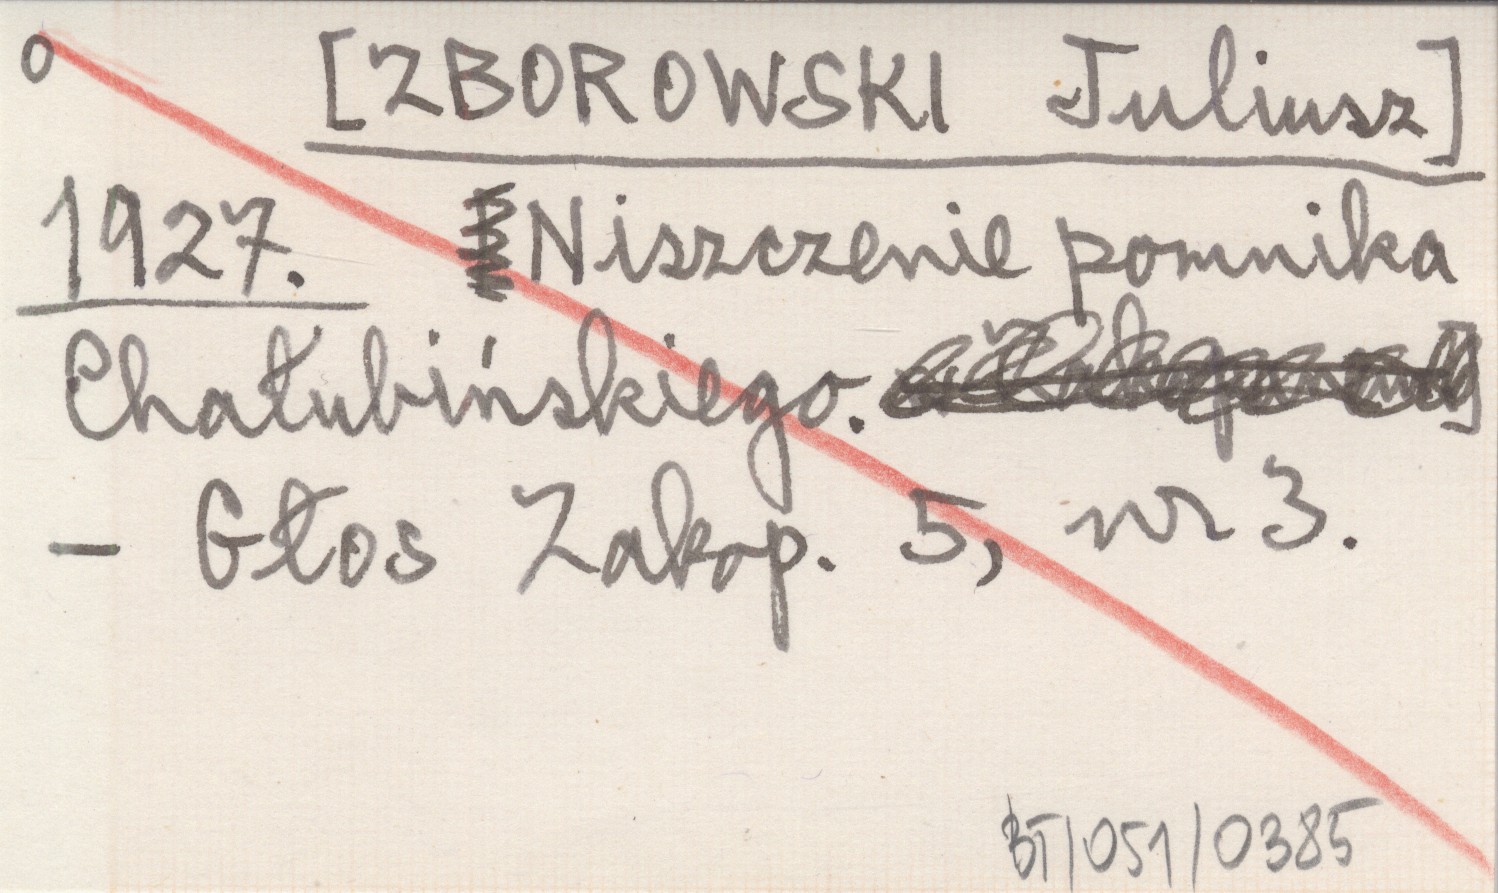 o [ZBOROWSKI Juliusz]
1927. Niszczenie pomnika
Chałubińskiego.
- Głos Zakop. 5, nr 3.
BT/051/0385